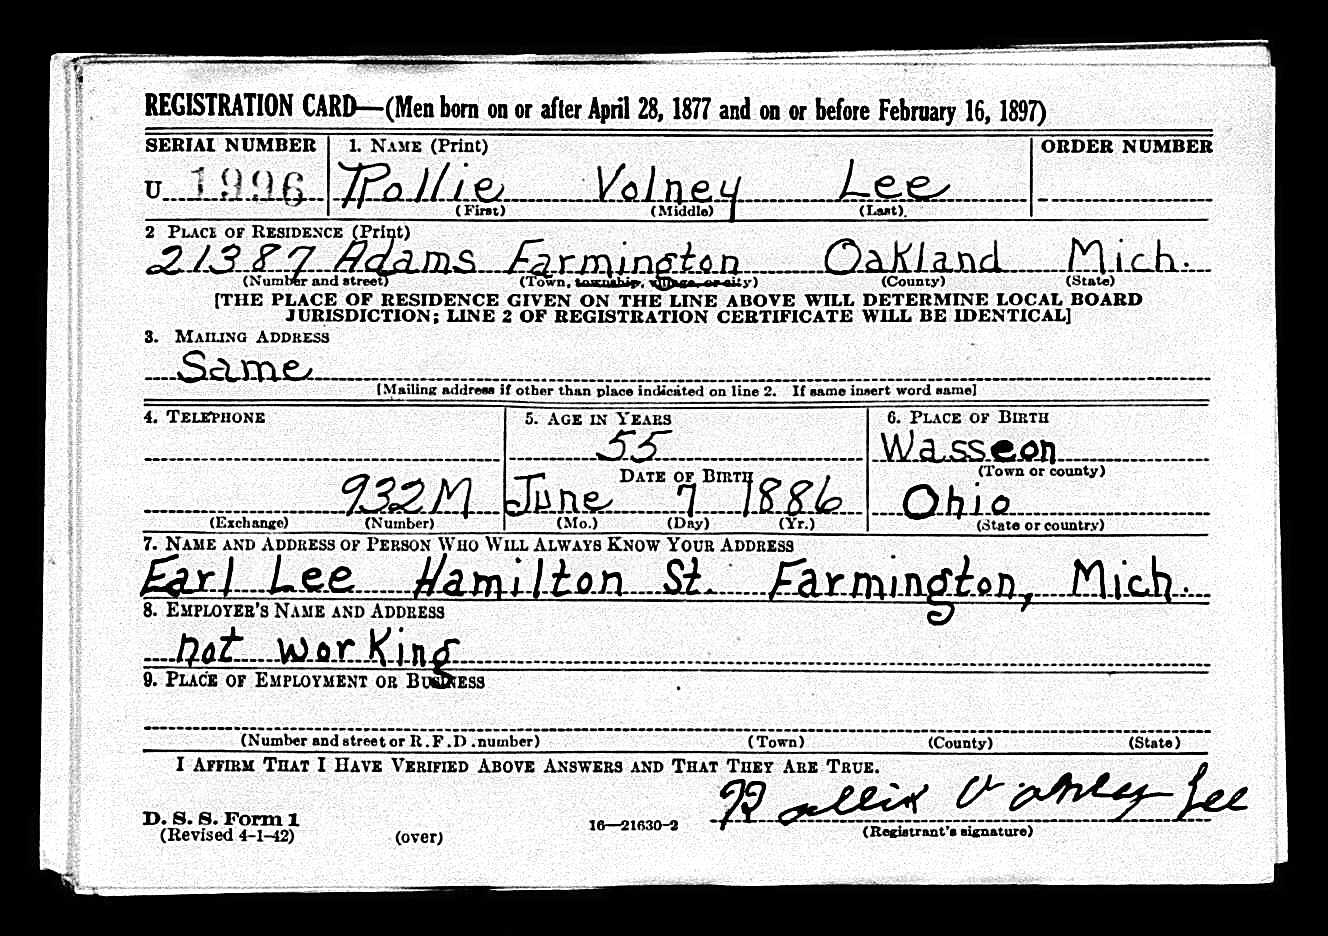 REGISTRATION CARD—(Men born on or after April 28, 1877 and on or before February 16, 1897)
SERIAL NUMBER 1. NAME (Print) ORDER NUMBER
U 1996 Rollie Volney Lee
(First) (Middle) (Last)
2 PLACE OF RESIDENCE (Print)
21387 Adams Farmington Oakland Mich.
(Number and street) (Town, township, village, or city) (County) (State)
[THE PLACE OF RESIDENCE GIVEN ON THE LINE ABOVE WILL DETERMINE LOCAL BOARD
JURISDICTION; LINE 2 OF REGISTRATION CERTIFICATE WILL BE IDENTICAL]
3. MAILING ADDRESS
Same
[Mailing address if other than place indicated on line 2. If same insert word same]
4. TELEPHONE 5. AGE IN YEARS 6. PLACE OF BIRTH
55 Wasseon
DATE OF BIRTH (Town or county)
932M June 7 1886 Ohio
(Exchange) (Number) (Mo.) (Day) (Yr.) (State or country)
7. NAME AND ADDRESS OF PERSON WHO WILL ALWAYS KNOW YOUR ADDRESS
Earl Lee Hamilton St. Farmington, Mich.
8. EMPLOYER'S NAME AND ADDRESS
not working
9. PLACE OF EMPLOYMENT OR BUSINESS
(Number and street or R.F.D. number) (Town) (County) (State)
I AFFIRM THAT I HAVE VERIFIED ABOVE ANSWERS AND THAT THEY ARE TRUE.
Rollie Volney Lee
D. S. S. Form 1
(Revised 4-1-42) (over) 16—21630-2 (Registrant's signature)